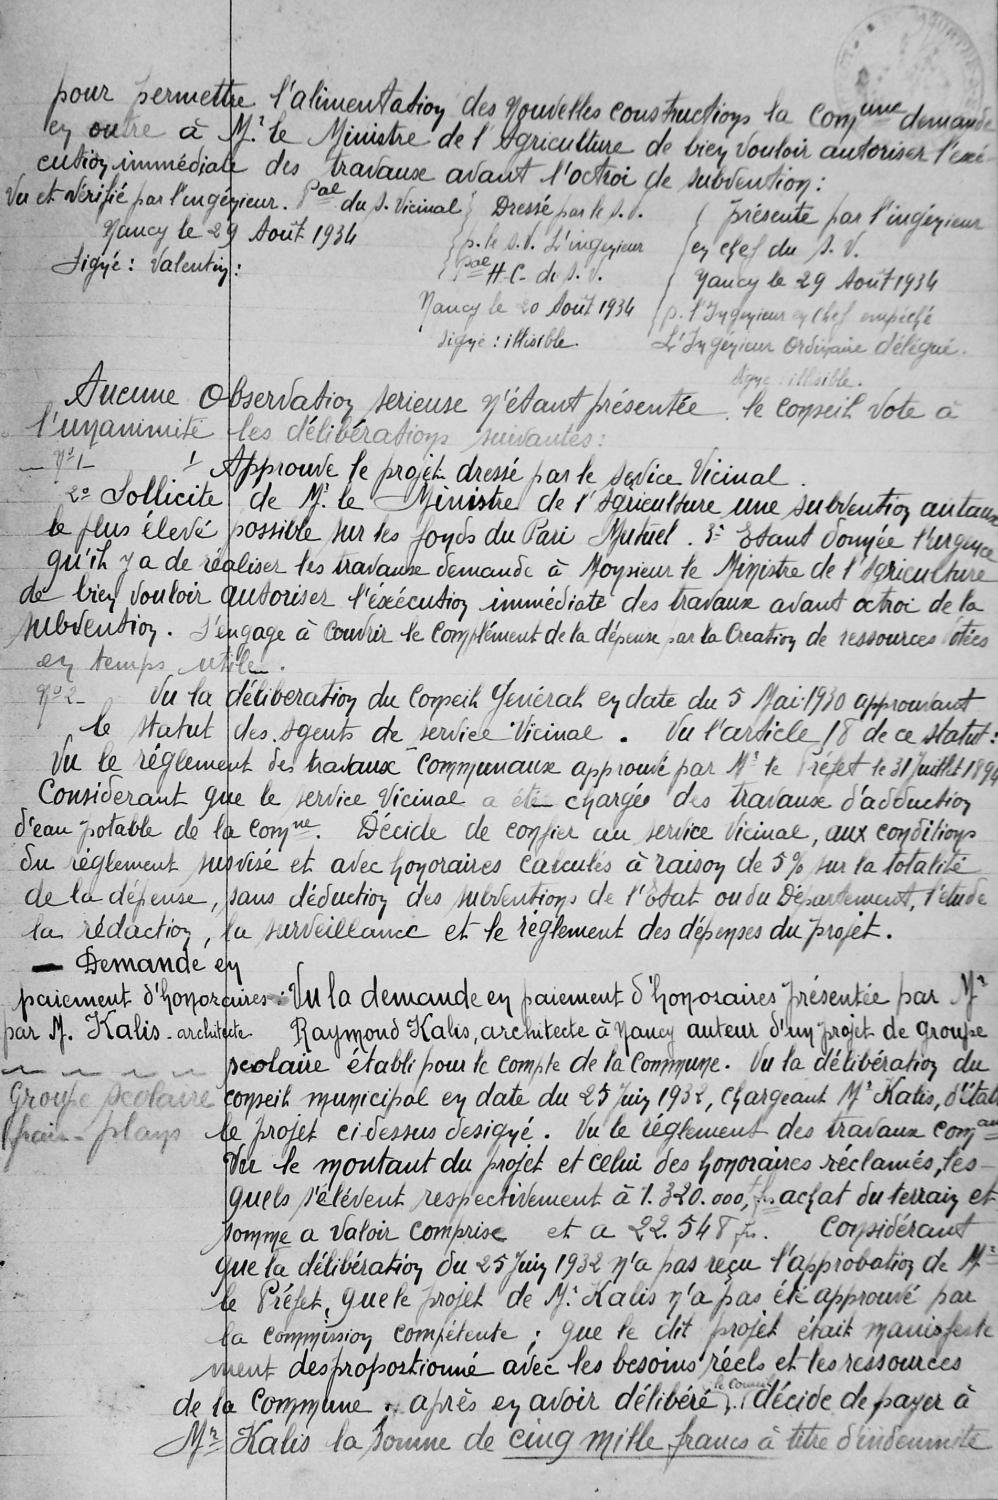 pour permettre l'alimentation des nouvelles constructions la Comune demande
en outre à Mr. le Ministre de l'Agriculture de bien vouloir autoriser l'exé-
cution immédiate des travaux avant l'octroi de subvention :
Vu et vérifié par l'ingénieur. Pal du S. Vicinal
Nancy le 29 Août 1934
Signé : Valentin :
Dressé par le S.V.
p. le S.V. L'ingénieur
Pal H-C- du S.V.
Nancy le 20 Août 1934
signé : illisible.
présenté par l'ingénieur
en chef du S.V.
Nancy le 29 Août 1934
p. l'Ingénieur en Chef empéché
L'Ingénieur Ordinaire délégué.
signé : illisible.
Aucune Observation serieuse n'étant présentée. le Conseil vote à
l'unanimité les délibérations suivantes :
No 1 - 1 Approuve le projet dressé par le Service Vicinal.
2o Sollicite de Mr. le Ministre de l'Agriculture une subvention au taux
le plus élevé possible sur les fonds du Pari Mutuel. 3o Etant donnée l'urgence
qu'il y a de réaliser les travaux demande à Monsieur le Ministre de l'Agriculture
de bien vouloir autoriser l'exécution immédiate des travaux avant octroi de la
subvention. S'engage à couvrir le complément de la dépense par la Creation de ressources votées
en temps utile.
No 2 - Vu la déliberation du Conseil Général en date du 5 Mai 1930 approuvant
le statut des agents de service Vicinal. Vu l'article 18 de ce statut :
Vu le réglement des travaux Communaux approuvé par Mr le Préfet le 31 Juillet 1894
Considerant que le service Vicinal a été chargée des travaux d'adduction
d'eau potable de la Comne. Décide de confier au service Vicinal, aux conditions
du réglement susvisé et avec honoraires calculés à raison de 5% sur la totalité
de la dépense, sans déduction des subventions de l'Etat ou du Département, l'étude
la rédaction, la surveillance et le réglement des dépenses du projet.
- Demande en
paiement d'honoraires :
par M. Kalis - architecte
Groupe scolaire
plans
Vu la demande en paiement d'honoraires présentée par Mr
Raymond Kalis, architecte à Nancy auteur d'un projet de groupe
scolaire établi pour le compte de la Commune. Vu la délibération du
conseil municipal en date du 25 Juin 1932, chargeant Mr Kalis, d'étab
le projet ci-dessus designé. Vu le réglement des travaux comaux
Vu le montant du projet et celui des honoraires réclamés, les-
quels s'élèvent respectivement à 1.320.000, frs achat du terrain et
somme a valoir comprise et a 22.548 frs. Considérant
que la délibération du 25 Juin 1932 n'a pas reçu l'approbation de Mr
le Préfet, que le projet de Mr. Kalis n'a pas été approuvé par
la commission compétente ; que le dit projet était manisfeste
ment desproportionné avec les besoins réels et les ressources
de la Commune. après en avoir délibéré, le Conseil décide de payer à
Mr Kalis la somme de cinq mille francs à titre d'indemnité